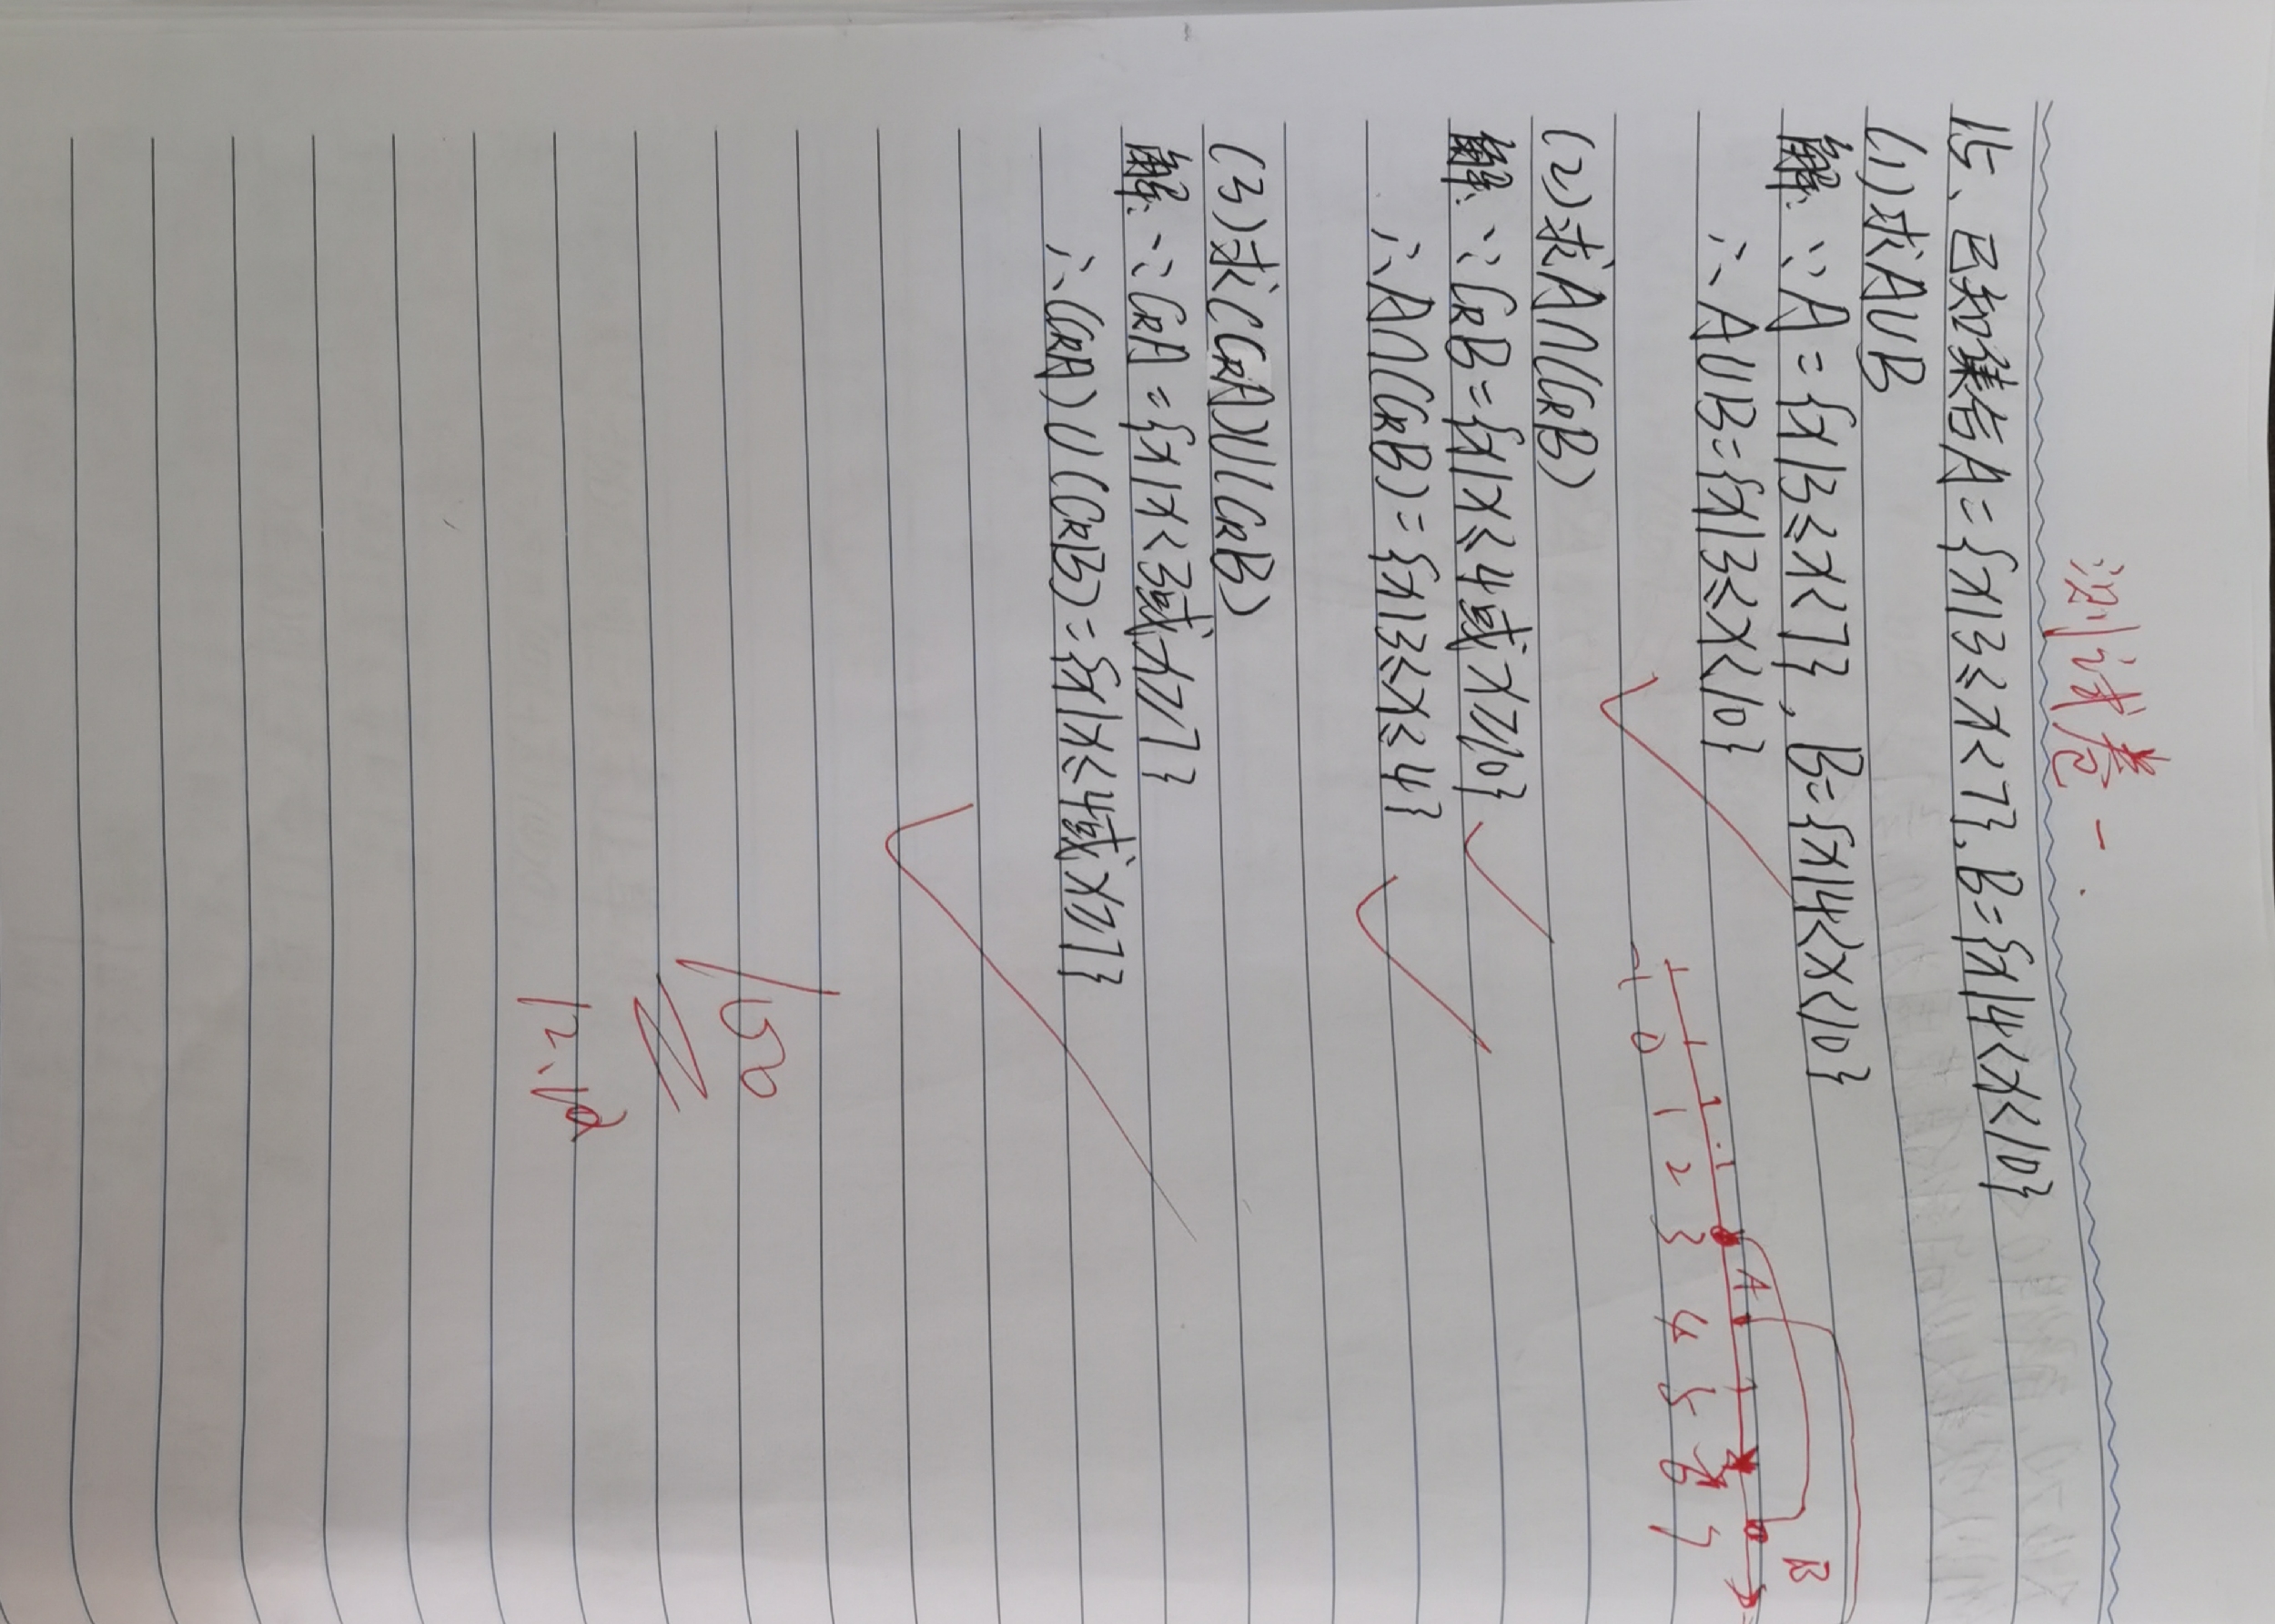 测试卷一.
15、已知集合A={x|3≤x<7},B={x|4<x<10}
(1)求A∪B
解:∵A={x|3≤x<7},B={x|4<x<10}
∴A∪B={x|3≤x<10}
A B
-1 0 1 2 3 4 5 6 7
(2)求A∩(CRB)
解:∵CRB={x|x≤4或x≥10}
∴A∩(CRB)={x|3≤x≤4}
(3)求(CRA)∪(CRB)
解:∵CRA={x|x<3或x≥7}
∴(CRA)∪(CRB)={x|x≤4或x≥7}
100
12.12